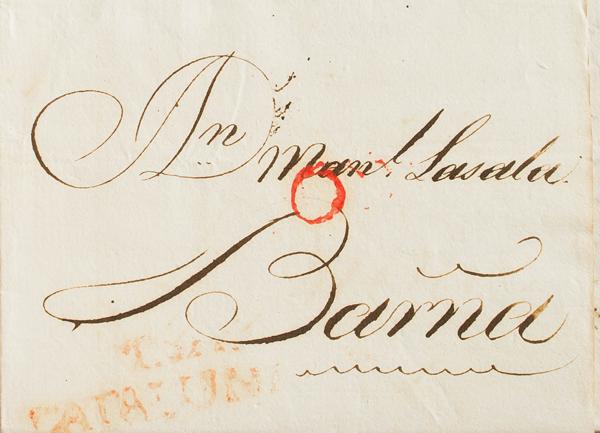 Dn Manl. Lasala
Barña
CATALUÑA